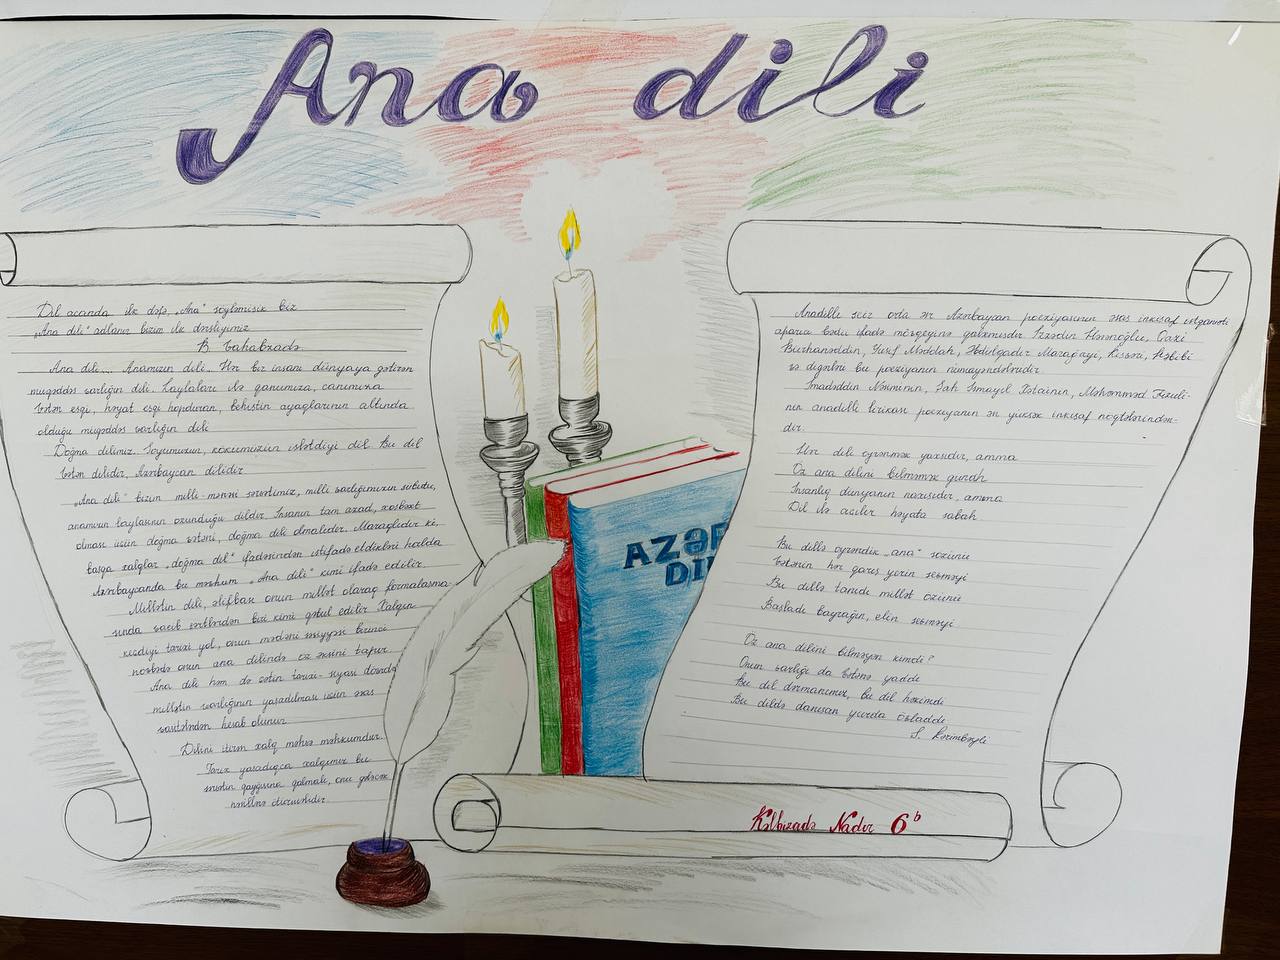 Ana dili
Dil açanda ilk dəfə „Ana" söyləmişik biz
„Ana dili" adlanır bizim ilk dərsliyimiz
B. Vahabzadə
Ana dili... Anamızın dili. Hər bir insanı dünyaya gətirən
müqəddəs varlığın dili. Laylaları ilə qanımıza, canımıza
Vətən eşqi, həyat eşqi hopduran, behiştin ayaqlarının altında
olduğu müqəddəs varlığın dili
Doğma dilimiz. Soyumuzun, kökümüzün işlətdiyi dil. Bu dil
Vətən dilidir, Azərbaycan dilidir
„Ana dili" bizim milli-mənəvi sərvətimiz, milli varlığımızın sübutu,
anamızın laylasının oxunduğu dildir. İnsanın tam azad, xoşbəxt
olması üçün doğma vətəni, doğma dili olmalıdır. Maraqlıdır ki,
başqa xalqlar „doğma dil" ifadəsindən istifadə etdikləri halda
Azərbaycanda bu məfhum „Ana dili" kimi ifadə edilir.
Millətin dili, əlifbası onun millət olaraq formalaşma-
sında vacib şərtlərdən biri kimi qəbul edilir. Xalqın
keçdiyi tarixi yol, onun mədəni səviyyəsi birinci
növbədə onun ana dilində öz əksini tapır.
Ana dili həm də çətin tarixi-siyasi dövrdə
millətin varlığının yaşadılması üçün əsas
vasitələrdən hesab olunur.
Dilini itirən xalq məhvə məhkumdur.
Tarix yaşadıqca xalqımız bu
sərvətin qayğısına qalmalı, onu gələcək
nəsillərə ötürməlidir.
AZƏR
DİL
Anadilli şeir orta əsr Azərbaycan poeziyasının əsas inkişaf istiqaməti
aparıcı bədii ifadə mövqeyinə qalxmışdır. İzzəddin Həsənoğlu, Qazi
Bürhanəddin, Yusif Məddah, Əbdülqadir Marağayi, Kişvəri, Həbibi
və digərləri bu poeziyanın nümayəndələridir.
İmadəddin Nəsiminin, Şah İsmayıl Xətainin, Məhəmməd Füzuli-
nin anadilli lirikası poeziyanın ən yüksək inkişaf nöqtələrindən-
dir.
Hər dili öyrənmək yaxşıdır, amma
Öz ana dilini bilməmək günah
İnsanlıq dünyanın naxışıdır, amma
Dil ilə açılır həyata sabah
Bu dillə öyrəndik „ana" sözünü
Vətənin hər qarış yerin sevməyi
Bu dillə tanıdı millət özünü
Başladı bayrağın, elin sevməyi
Öz ana dilini bilməyən kimdi?
Onun varlığı da Vətənə yaddı
Bu dil dərmanımız, bu dil həkimdi
Bu dildə danışan yurda övladdı
S. Kərimbəyli
Kəlbizadə Nadir 6ᵇ